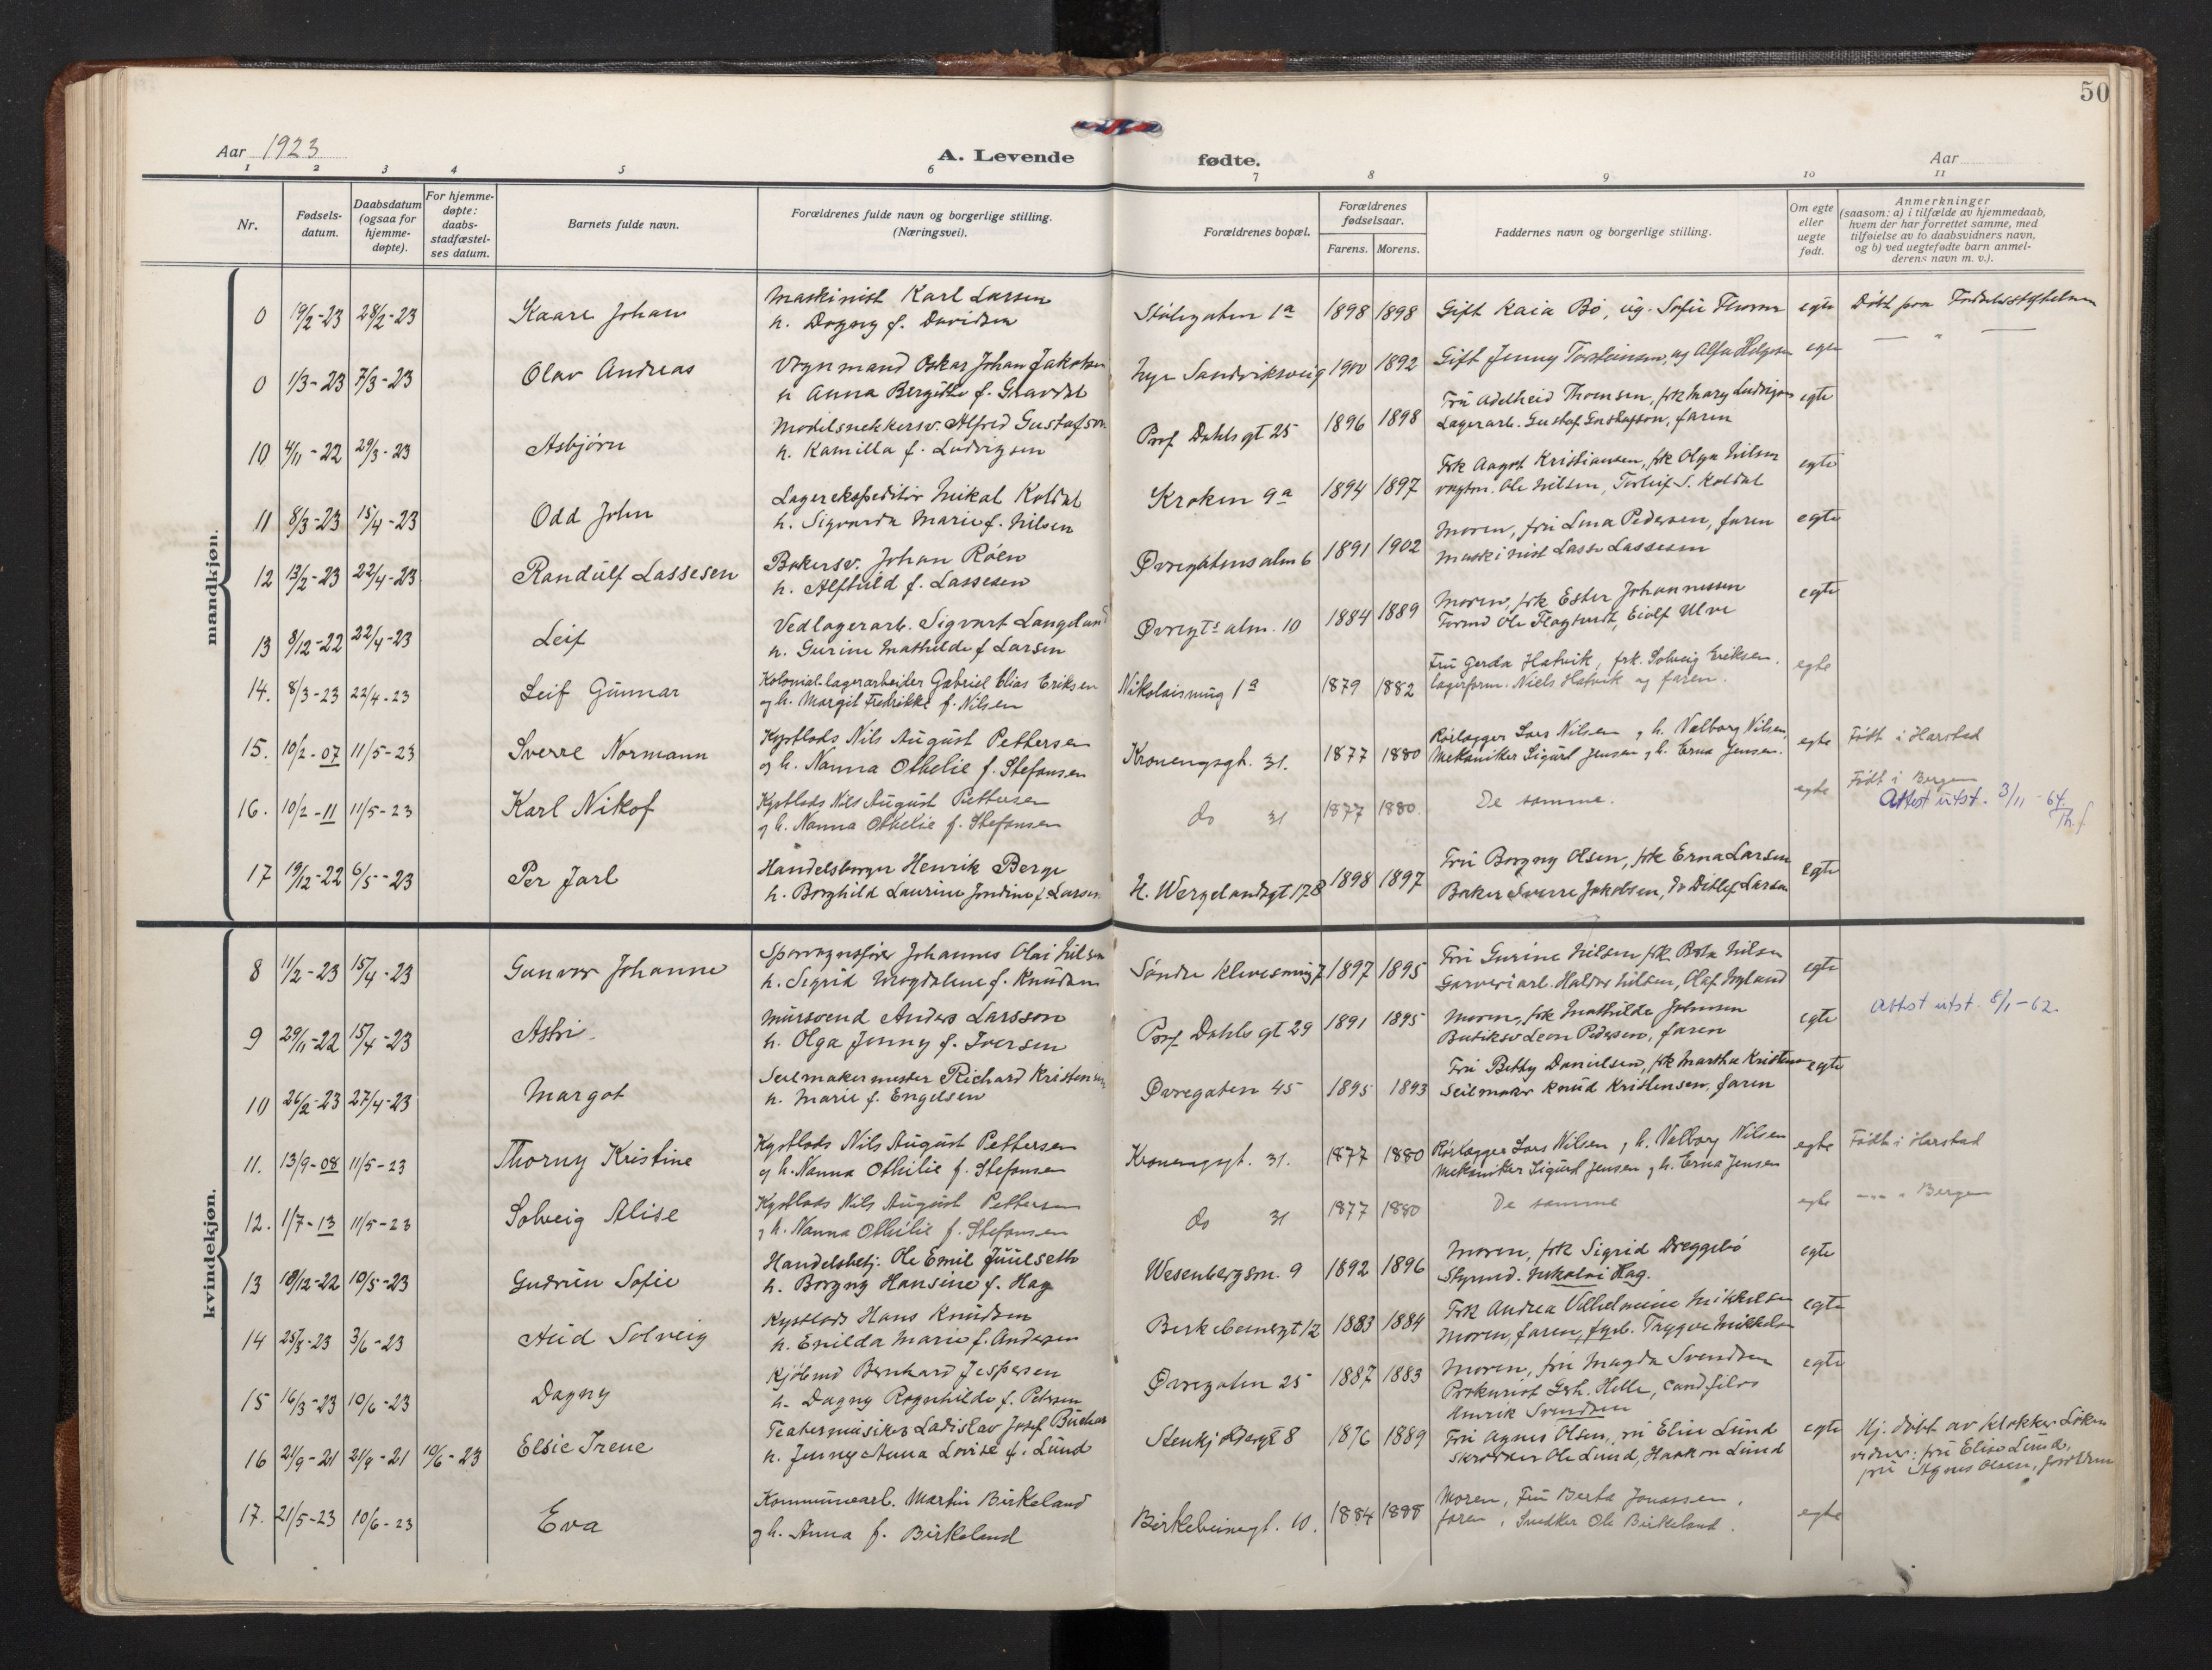 50
Aar 1923
A. Levende
fødte.
Aar
1 2 3 4 5 6 7 8 9 10 11
Nr.
Fødsels-
datum.
Daabsdatum
(ogsaa for
hjemme-
døpte).
For hjemme-
døpte:
daabs-
stadfæstel-
ses datum.
Barnets fulde navn.
Forældrenes fulde navn og borgerlige stilling.
(Næringsvei).
Forældrenes bopæl.
Forældrenes
fødselsaar.
Farens. Morens.
Faddernes navn og borgerlige stilling.
Om egte
eller
uegte
født.
Anmerkninger
(saasom: a) i tilfælde av hjemmedaab,
hvem der har forrettet samme, med
tilføielse av to daabsvidners navn,
og b) ved uegtefødte barn anmel-
derens navn m. v.).
mandkjøn.
Maskinist Karl Larsen
0 19/2-23 28/2-23 Kaare Johan h. Dagny f. Davidsen Stølegaten 1a 1898 1898 Gift Kaia Bø, ug. Sofie egte Døbt paa Fødselsstiftelsen
Vognmand Oskar Johan Jakobsen
0 1/3-23 7/3-23 Olav Andreas h. Anna Bergitte f. Gravdal Nye Sandviksveig 1900 1892 Gift Jenny Torsteinsen, ug Alfa Helgesen egte — " —
Modelsnekkersv. Alfred Gustafson Fru Adelheid Thomsen, frk Mary Ludvigsen egte
10 4/11-22 29/3-23 Asbjørn h. Kamilla f. Ludvigsen Prof. Dahls gt 25 1896 1898 Lagerarb. Gustaf Gustafson, faren
Lagerekspeditør Mikal Koldal Frk Aagot Kristiansen, frk Olga Nilsen egte
11 8/3-23 15/4-23 Odd John h. Sigvarda Marie f. Nilsen Kroken 9a 1894 1897 vogtm. Ole Nilsen, Torleif S. Koldal
Bakersv. Johan Røen Moren, fru Lina Pedersen, faren egte
12 13/2-23 22/4-23 Randulf Lassesen h. Alfhild f. Lassesen Øvregatens alm 6 1891 1902 Maskinist Lasse Lassesen
Vedlagerarb. Sigvart Langeland Moren, frk Ester Johannessen egte
13 8/12-22 22/4-23 Leif h. Gurine Mathilde f Larsen Øvregts alm. 10 1884 1889 Ole Eiolf Ulve
Kolonial-lagerarbeiler Gabriel Elias Eriksen Fru Gerda Hatvik, frk. Solveig Eriksen. egte
14. 8/3-23 22/4-23 Leif Gunnar og h. Margit Fredrikke f. Nilsen Nikolaismug 1a 1879 1882 lagerform. Niels Hatvik og faren.
Kystlods Nils August Pettersen Rørlægger Lars Nilsen, h. Valborg Nilsen,
15. 10/2-07 11/5-23 Sverre Normann og h. Nanna Othelie f. Stefansen Kroneengsgt. 31. 1877 1880 Mekaniker Sigurd Jensen, h. Erna Jensen. egte Født i Harstad
Kystlods Nils August Pettersen Født i Bergen
16. 10/2-11 11/5-23 Karl Nikof og h. Nanna Othelie f. Stefansen do 31 1877 1880. De samme. egte Attest utst. 3/11-64. Th.f.
Handelsborger Henrik Berge Fru Borgny Olsen, frk Erna Larsen
17 19/12-22 6/5-23 Per Jarl h. Borghild Laurine Jondine f. Larsen H. Wergelandsgt 17B 1898 1897 Baker Sverre Jakobsen, do Ditlef Larsen egte
kvindekjøn.
Sporvognsfører Johannes Olai Nilsen Fru Gurine Nilsen frk Nilsen
8 11/2-23 15/4-23 Gunvor Johanne h. Sigrid Magdalene f. Knudsen Søndre Klevesmug 7 1897 1895 Garveriarb. Haldor Nilsen, Olaf Myland egte
Mursvend Anders Larsson Moren, frk Mathilde Johnsen
9 29/11-22 15/4-23 Astri h. Olga Jenny f. Iversen Prof Dahls gt 29 1891 1895 Butiksv Leon Pedersen, faren egte Attest utst. 8/1-62.
Seilmakermester Richard Kristensen Fru Betty Danielsen, frk Martha Kristensen egte
10 26/2-23 27/4-23 Margot h. Marie f. Engelsen Øvregaten 45 1895 1893 Seilmaker Knud Kristensen, faren
Kystlods Nils August Pettersen Rørlægger Lars Nilsen, h. Valborg Nilsen
11. 13/9-08 11/5-23 Thorny Kristine og h. Nanna Othilie f. Stefansen Kroneengsgt. 31. 1877 1880 Mekaniker Sigurd Jensen, h. Erna Jensen egte Født i Harstad
Kystlods Nils August Pettersen
12. 1/7-13 11/5-23 Solveig Alise og h. Nanna Othilie f. Stefansen do 31 1877 1880 De samme egte —"— " Bergen
Handelsbetj. Ole Emil Juulseth Moren, frk Sigrid Dreggebø
13 18/12-22 10/5-23 Gudrun Sofie h. Borgny Hansine f. Hag Wesenbergsm. 9 1892 1896 Styrmd. Nikolai Hag. egte
Kystlods Hans Knudsen Frk Andrea Vilhelmine Mikkelsen
14 25/3-23 3/6-23 Aud Solveig h. Enilda Marie f. Andersen Birkebeinergt 12 1883 1884 Moren, faren, Trygve Mikkelsen egte
Bernhard Jespersen Moren, fru Magda Svendsen
15 16/3-23 10/6-23 Dagny h. Dagny Ragnhilde f. Petersen Øvregaten 25 1887 1883 Prokurist Gerh. Helle, cand filos egte
Henrik Svendsen
Teatermusiker Ladislav Josef
16 21/9-21 21/9-21 10/6-23 Elsie Irene h. Jenny Anna Lovise f. Lund Stenkjellergt 8 1876 1889 Fru Agnes Olsen, fru Elise Lund egte Hj. døbt av klokker Løken
Ole Lund, Haakon Lund vidner: fru Elise Lund,
fru Agnes Olsen, forældrene
Kommunearb. Martin Birkeland Moren, Fru Berta Jonassen,
17. 21/5-23 10/6-23 Eva og h. Anna f. Birkeland Birkebeinergt. 10. 1884 1888 faren, Snedker Ole Birkeland. egte